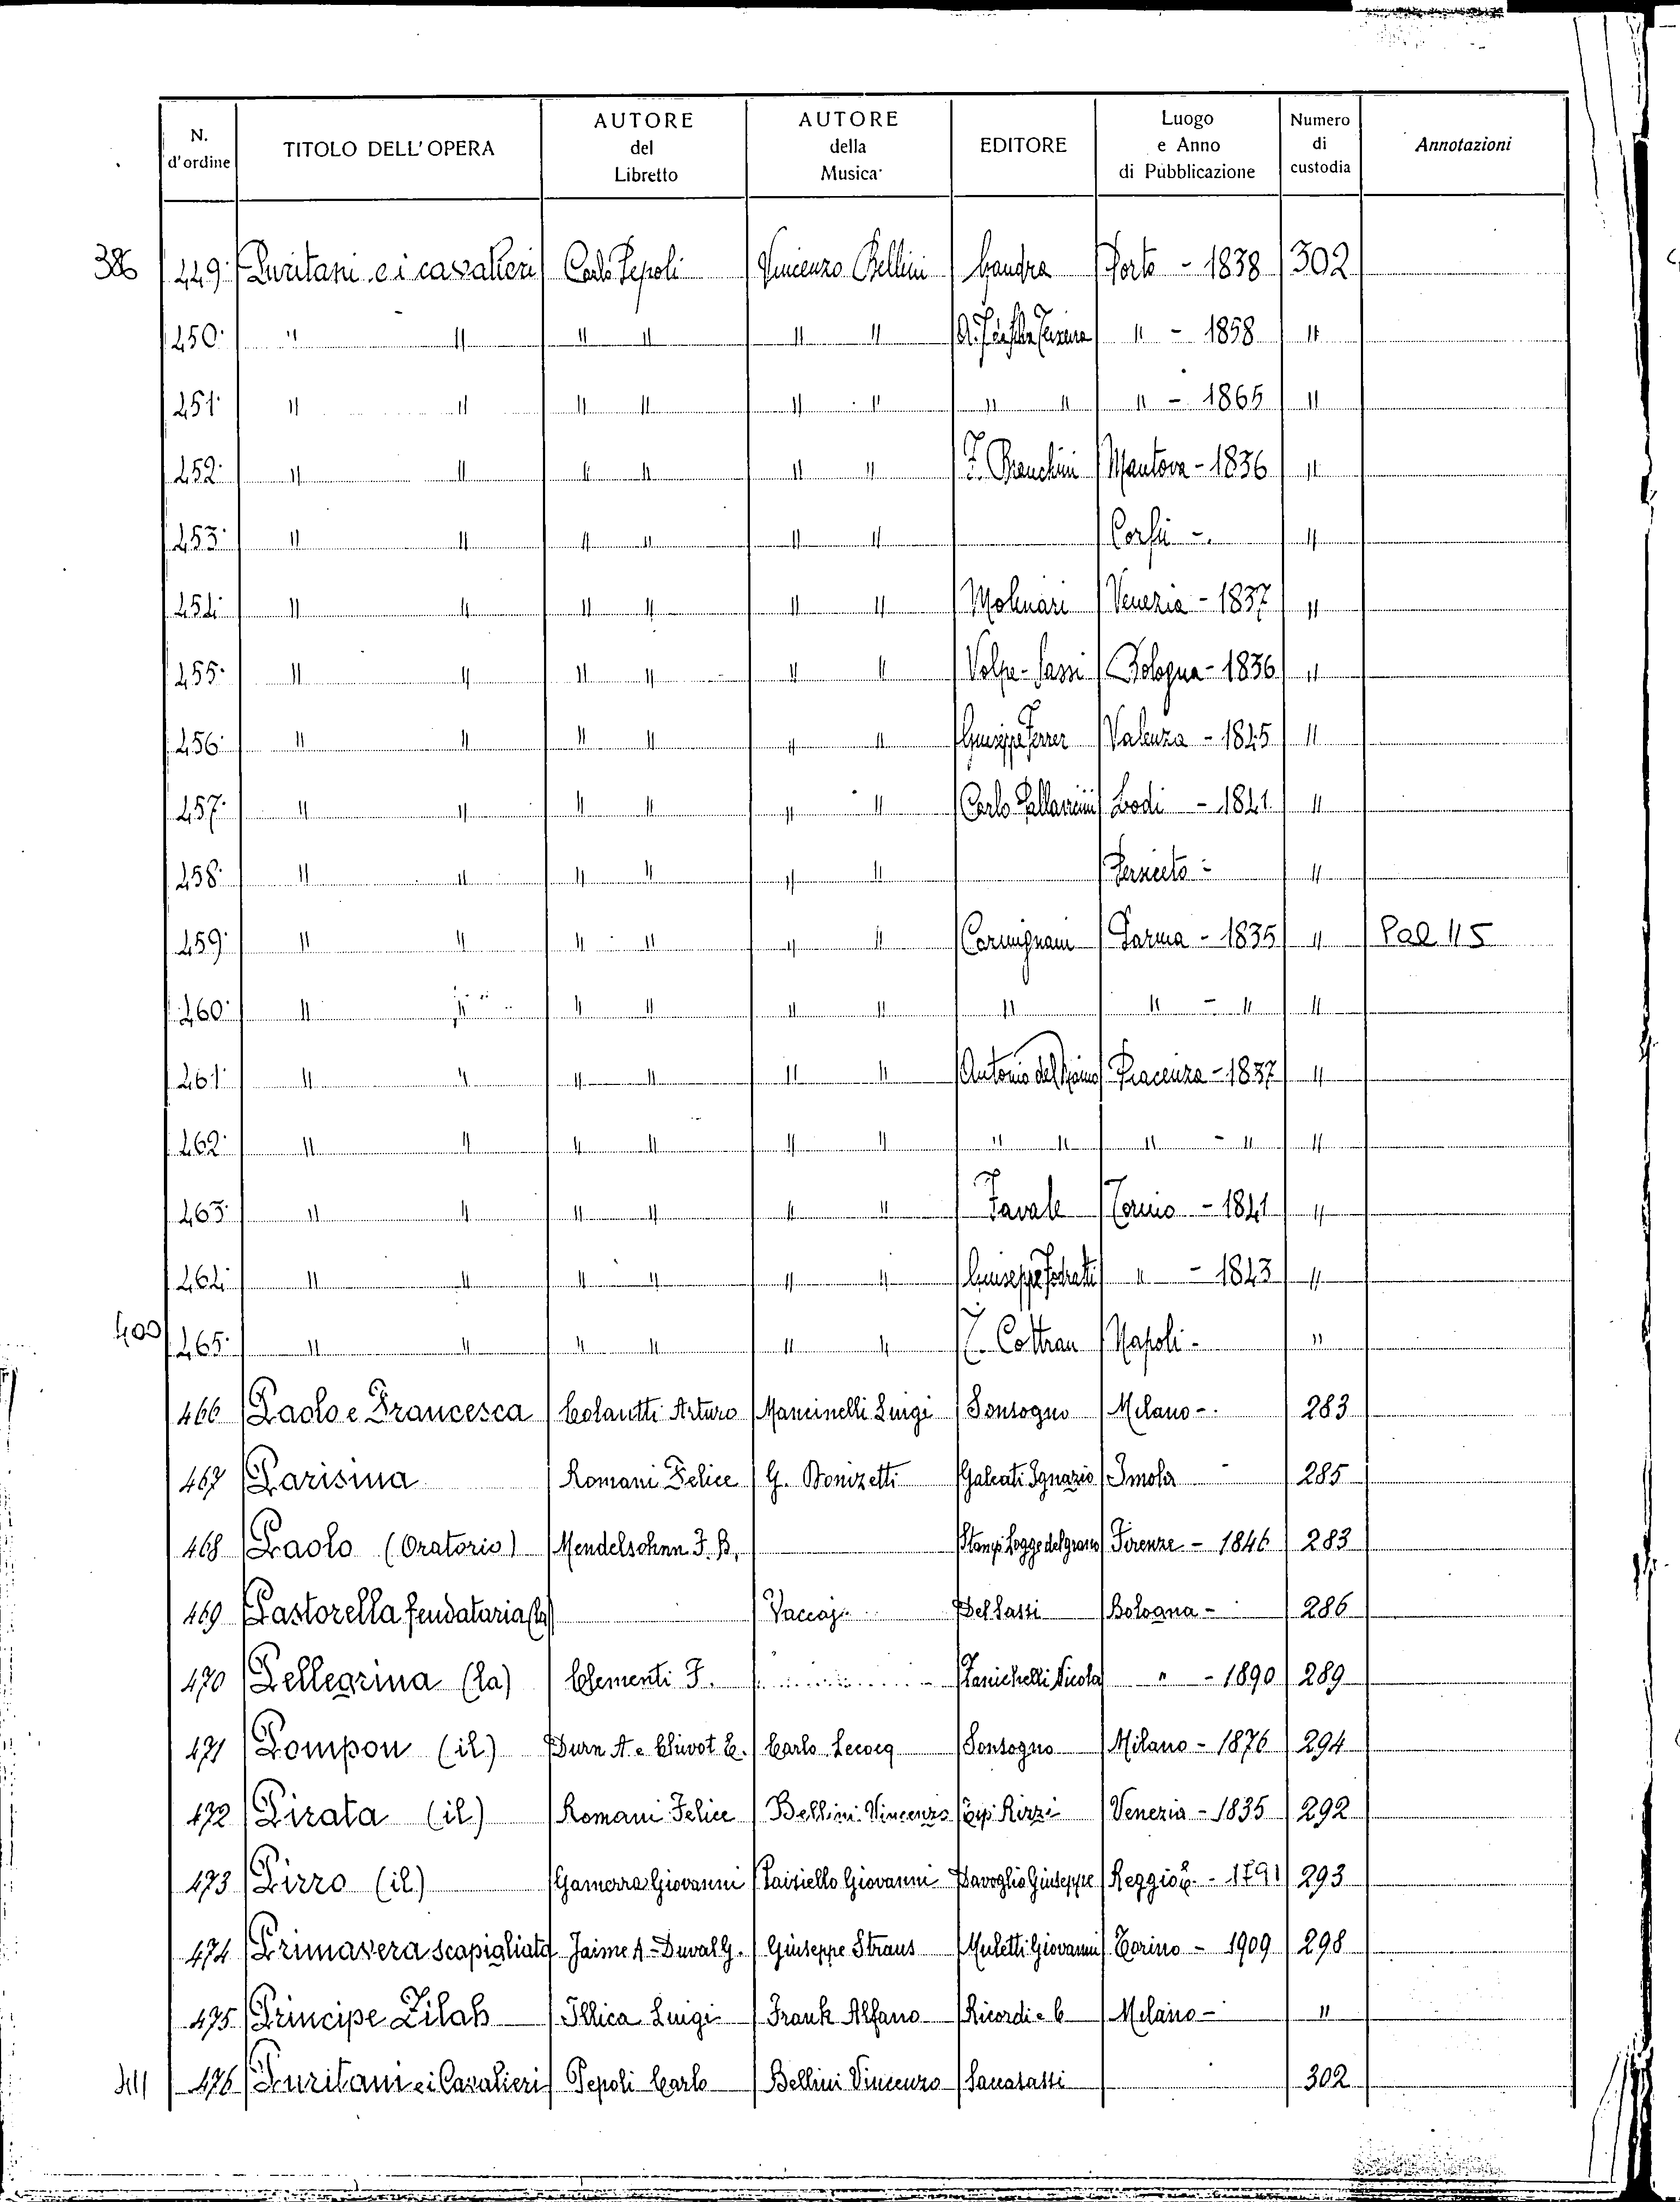 N. d'ordine TITOLO DELL'OPERA AUTORE del Libretto AUTORE della Musica EDITORE Luogo e Anno di Pubblicazione Numero di custodia Annotazioni
386 449 Puritani e i cavalieri Carlo Pepoli Vincenzo Bellini Gandra Porto - 1838 302
450 " " " " " " " - 1858 "
451 " " " " " " " " " - 1865 "
452 " " " " " " F. Branchini Mantova - 1836 "
453 " " " " " " Corfù - "
454 " " " " " " Molinari Venezia - 1837 "
455 " " " " " " Volpe-Sassi Bologna - 1836 "
456 " " " " " " Giuseppe Ferrer Valenza - 1845 "
457 " " " " " " Carlo Pallavicini Lodi - 1841 "
458 " " " " " " - "
459 " " " " " " Carmignani Parma - 1835 " Pal 115
460 " " " " " " " " - " "
461 " " " " " " Antonio del Maino Piacenza - 1837 "
462 " " " " " " " " " - " "
463 " " " " " " Favale Torino - 1841 "
464 " " " " " " Giuseppe Fodratti " - 1843 "
400 465 " " " " " " T. Cottrau Napoli - "
466 Paolo e Francesca Colautti Arturo Mancinelli Luigi Sonzogno Milano - 283
467 Parisina Romani Felice G. Donizetti Galeati Ignazio Imola - 285
468 Paolo (Oratorio) Mendelsohnn F. B. Stamp. Logge del grano Firenze - 1846 283
469 Pastorella feudataria (la) Vaccaj Del Sassi Bologna - 286
470 Pellegrina (la) Clementi F. Zanichelli Nicola " - 1890 289
471 Pompon (il) Duru A. e Chivot E. Carlo Lecocq Sonzogno Milano - 1876 294
472 Pirata (il) Romani Felice Bellini Vincenzo Tip. Rizzi Venezia - 1835 292
473 Pirro (il) Gamerra Giovanni Paisiello Giovanni Davoglio Giuseppe Reggio E. - 1791 293
474 Primavera scapigliata Jaime A - Duval G. Giuseppe Straus Muletti Giovanni Torino - 1909 298
475 Principe Zilah Illica Luigi Frank Alfano Ricordi e C Milano - "
411 476 Puritani e i Cavalieri Pepoli Carlo Bellini Vincenzo Sassi 302